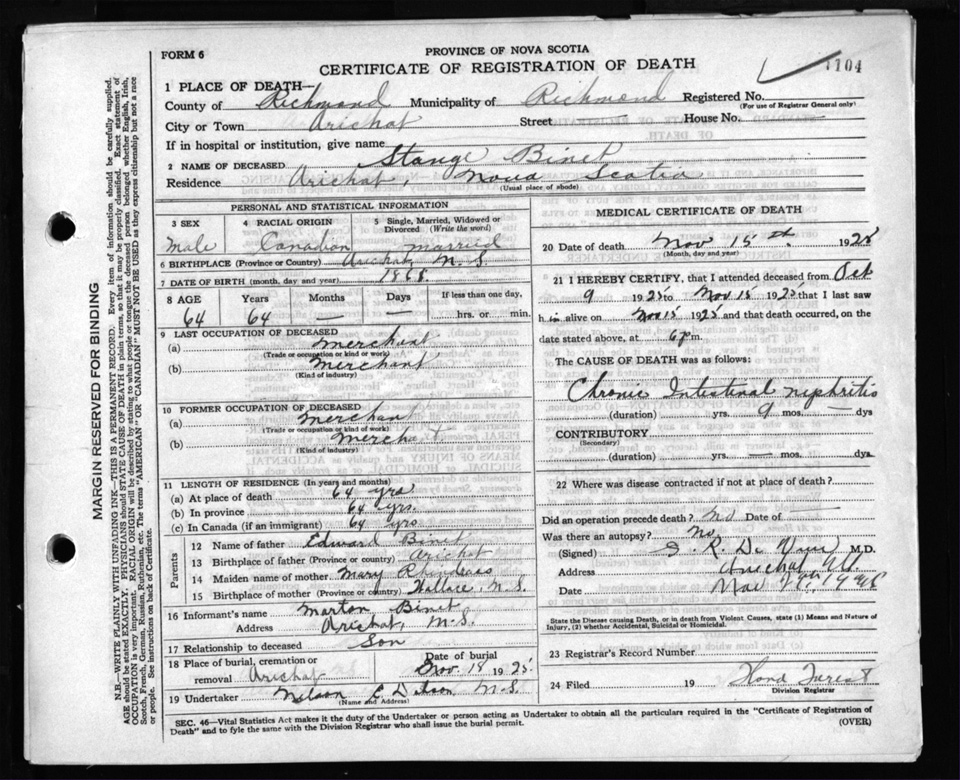 FORM 6
PROVINCE OF NOVA SCOTIA
CERTIFICATE OF REGISTRATION OF DEATH
1104
1 PLACE OF DEATH—
County of Richmond Municipality of Richmond Registered No.
(For use of Registrar General only)
City or Town Arichat Street — House No. —
If in hospital or institution, give name
2 NAME OF DECEASED Stange Binet
Residence Arichat, Nova Scotia
(Usual place of abode)
PERSONAL AND STATISTICAL INFORMATION
3 SEX 4 RACIAL ORIGIN 5 Single, Married, Widowed or Divorced (Write the word)
Male Canadian married
6 BIRTHPLACE (Province or Country) Arichat, N. S.
7 DATE OF BIRTH (month, day and year)
8 AGE Years Months Days If less than one day,
64 64 — — hrs. or min.
9 LAST OCCUPATION OF DECEASED
(a) Merchant
(Trade or occupation or kind of work)
(b) Merchant
(Kind of industry)
10 FORMER OCCUPATION OF DECEASED
(a) Merchant
(Trade or occupation or kind of work)
(b) Merchant
(Kind of industry)
11 LENGTH OF RESIDENCE (In years and months)
(a) At place of death 64 yrs
(b) In province 64 yrs.
(c) In Canada (if an immigrant) 64 yrs
Parents
12 Name of father Edward Binet
13 Birthplace of father (Province or country) Arichat
14 Maiden name of mother Mary
15 Birthplace of mother (Province or country) Wallace, N. S.
16 Informant's name Marton Binet
Address Arichat, N.S.
17 Relationship to deceased Son
18 Place of burial, cremation or removal Arichat Date of burial Nov. 18 1925
19 Undertaker Nelson E N.S.
(Name and Address)
MEDICAL CERTIFICATE OF DEATH
20 Date of death Nov 15th 1925
(Month, day and year)
21 I HEREBY CERTIFY, that I attended deceased from Feb
9 1925 to Nov 15 1925 that I last saw
h im alive on Nov 15 1925 and that death occurred, on
date stated above, at m.
The CAUSE OF DEATH was as follows:
Chronic Intestinal nephritis
(duration) yrs. 9 mos. — dys
CONTRIBUTORY
(Secondary)
(duration) yrs. — mos. dys.
22 Where was disease contracted if not at place of death?
Did an operation precede death? no Date of —
Was there an autopsy? No
(Signed) M.D.
Address Arichat N.S.
Date
State the Disease causing Death, or in death from Violent Causes, state (1) Means and Nature of Injury, (2) whether Accidental, Suicidal or Homicidal.
23 Registrar's Record Number
24 Filed 19
Division Registrar
SEC. 46—Vital Statistics Act makes it the duty of the Undertaker or person acting as Undertaker to obtain all the particulars required in the "Certificate of Registration of
Death" and to fyle the same with the Division Registrar who shall issue the burial permit.
(OVER)
MARGIN RESERVED FOR BINDING
N.B.—WRITE PLAINLY WITH UNFADING INK—THIS IS A PERMANENT RECORD. Every item of information should be carefully supplied.
AGE should be stated EXACTLY. PHYSICIANS should STATE CAUSE OF DEATH in plain terms, so that it may be properly classified. Exact statement of
OCCUPATION is very important. RACIAL ORIGIN will be described by stating to what people or tongue the deceased person belonged whether English, Irish,
Scotch, French, German, Russian, Ruthenian, etc. The terms "AMERICAN" OR "CANADIAN" MUST NOT BE USED as they express citizenship but not a race
or people. See instructions on back of Certificate.